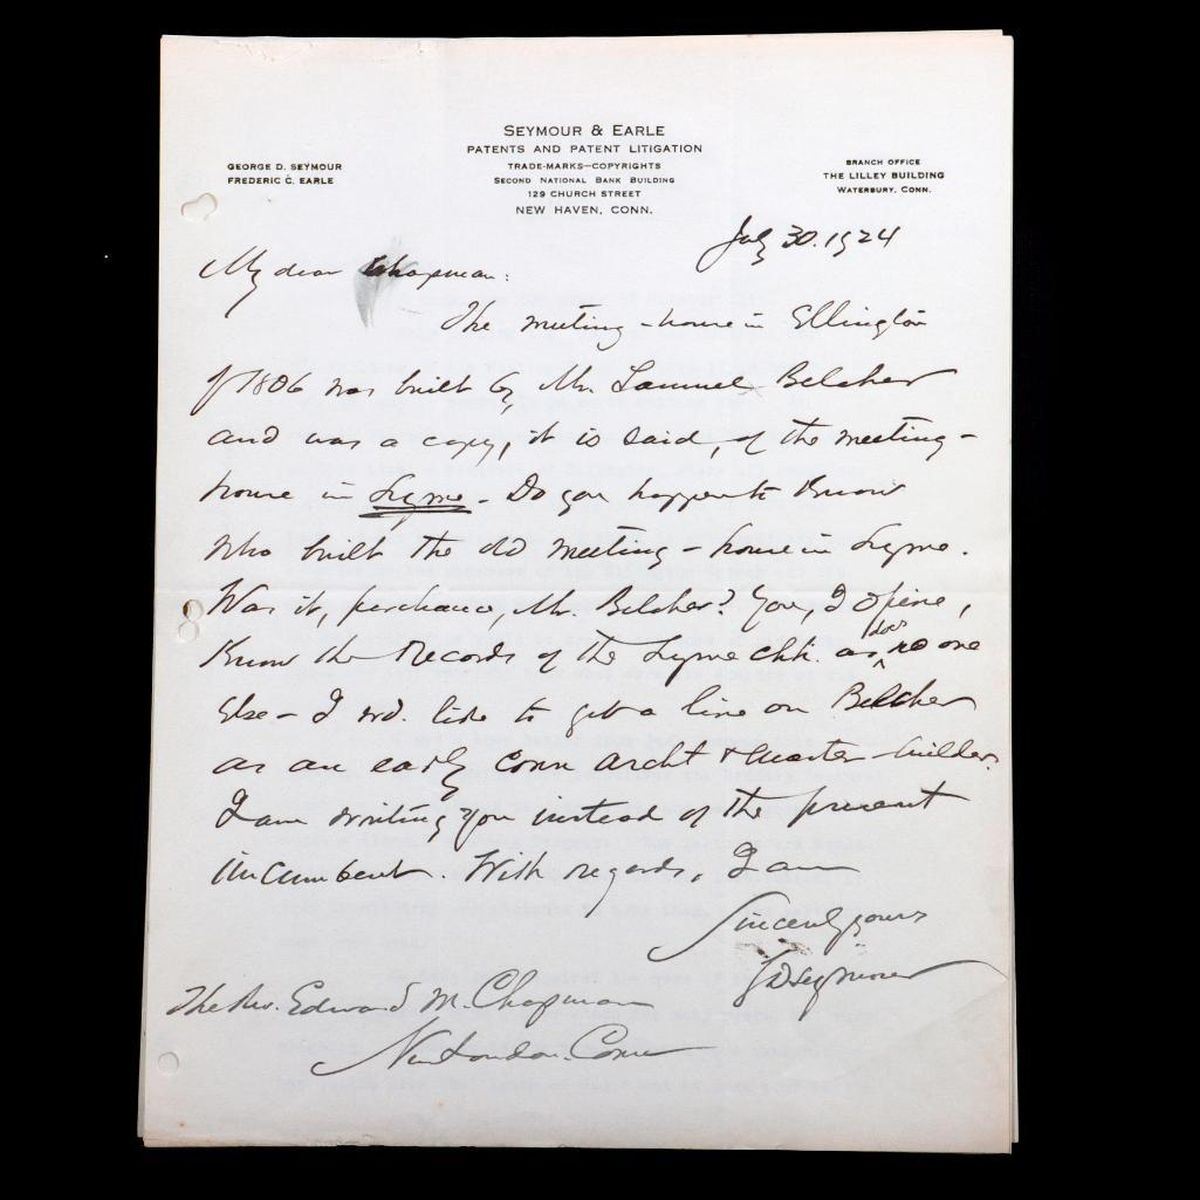 SEYMOUR & EARLE
PATENTS AND PATENT LITIGATION
TRADE-MARKS—COPYRIGHTS
SECOND NATIONAL BANK BUILDING
129 CHURCH STREET
NEW HAVEN, CONN.
GEORGE D. SEYMOUR
FREDERIC C. EARLE
BRANCH OFFICE
THE LILLEY BUILDING
WATERBURY, CONN.
July 30. 1924
My dear Chapman:
The meeting-house in Ellington
of 1806 was built by Mr. Samuel Belcher
and was a copy, it is said, of the meeting-
house in Lyme - Do you happen to know
who built the old meeting-house in Lyme.
Was it, perchance, Mr. Belcher? You, I opine,
know the records of the Lyme chh. as does no one
else - I wd. like to get a line on Belcher
as an early Conn archt & master-builder.
I am writing you instead of the present
incumbent. With regards, I am
Sincerely yours
GDSeymour
The Rev. Edward M. Chapman
New London. Conn